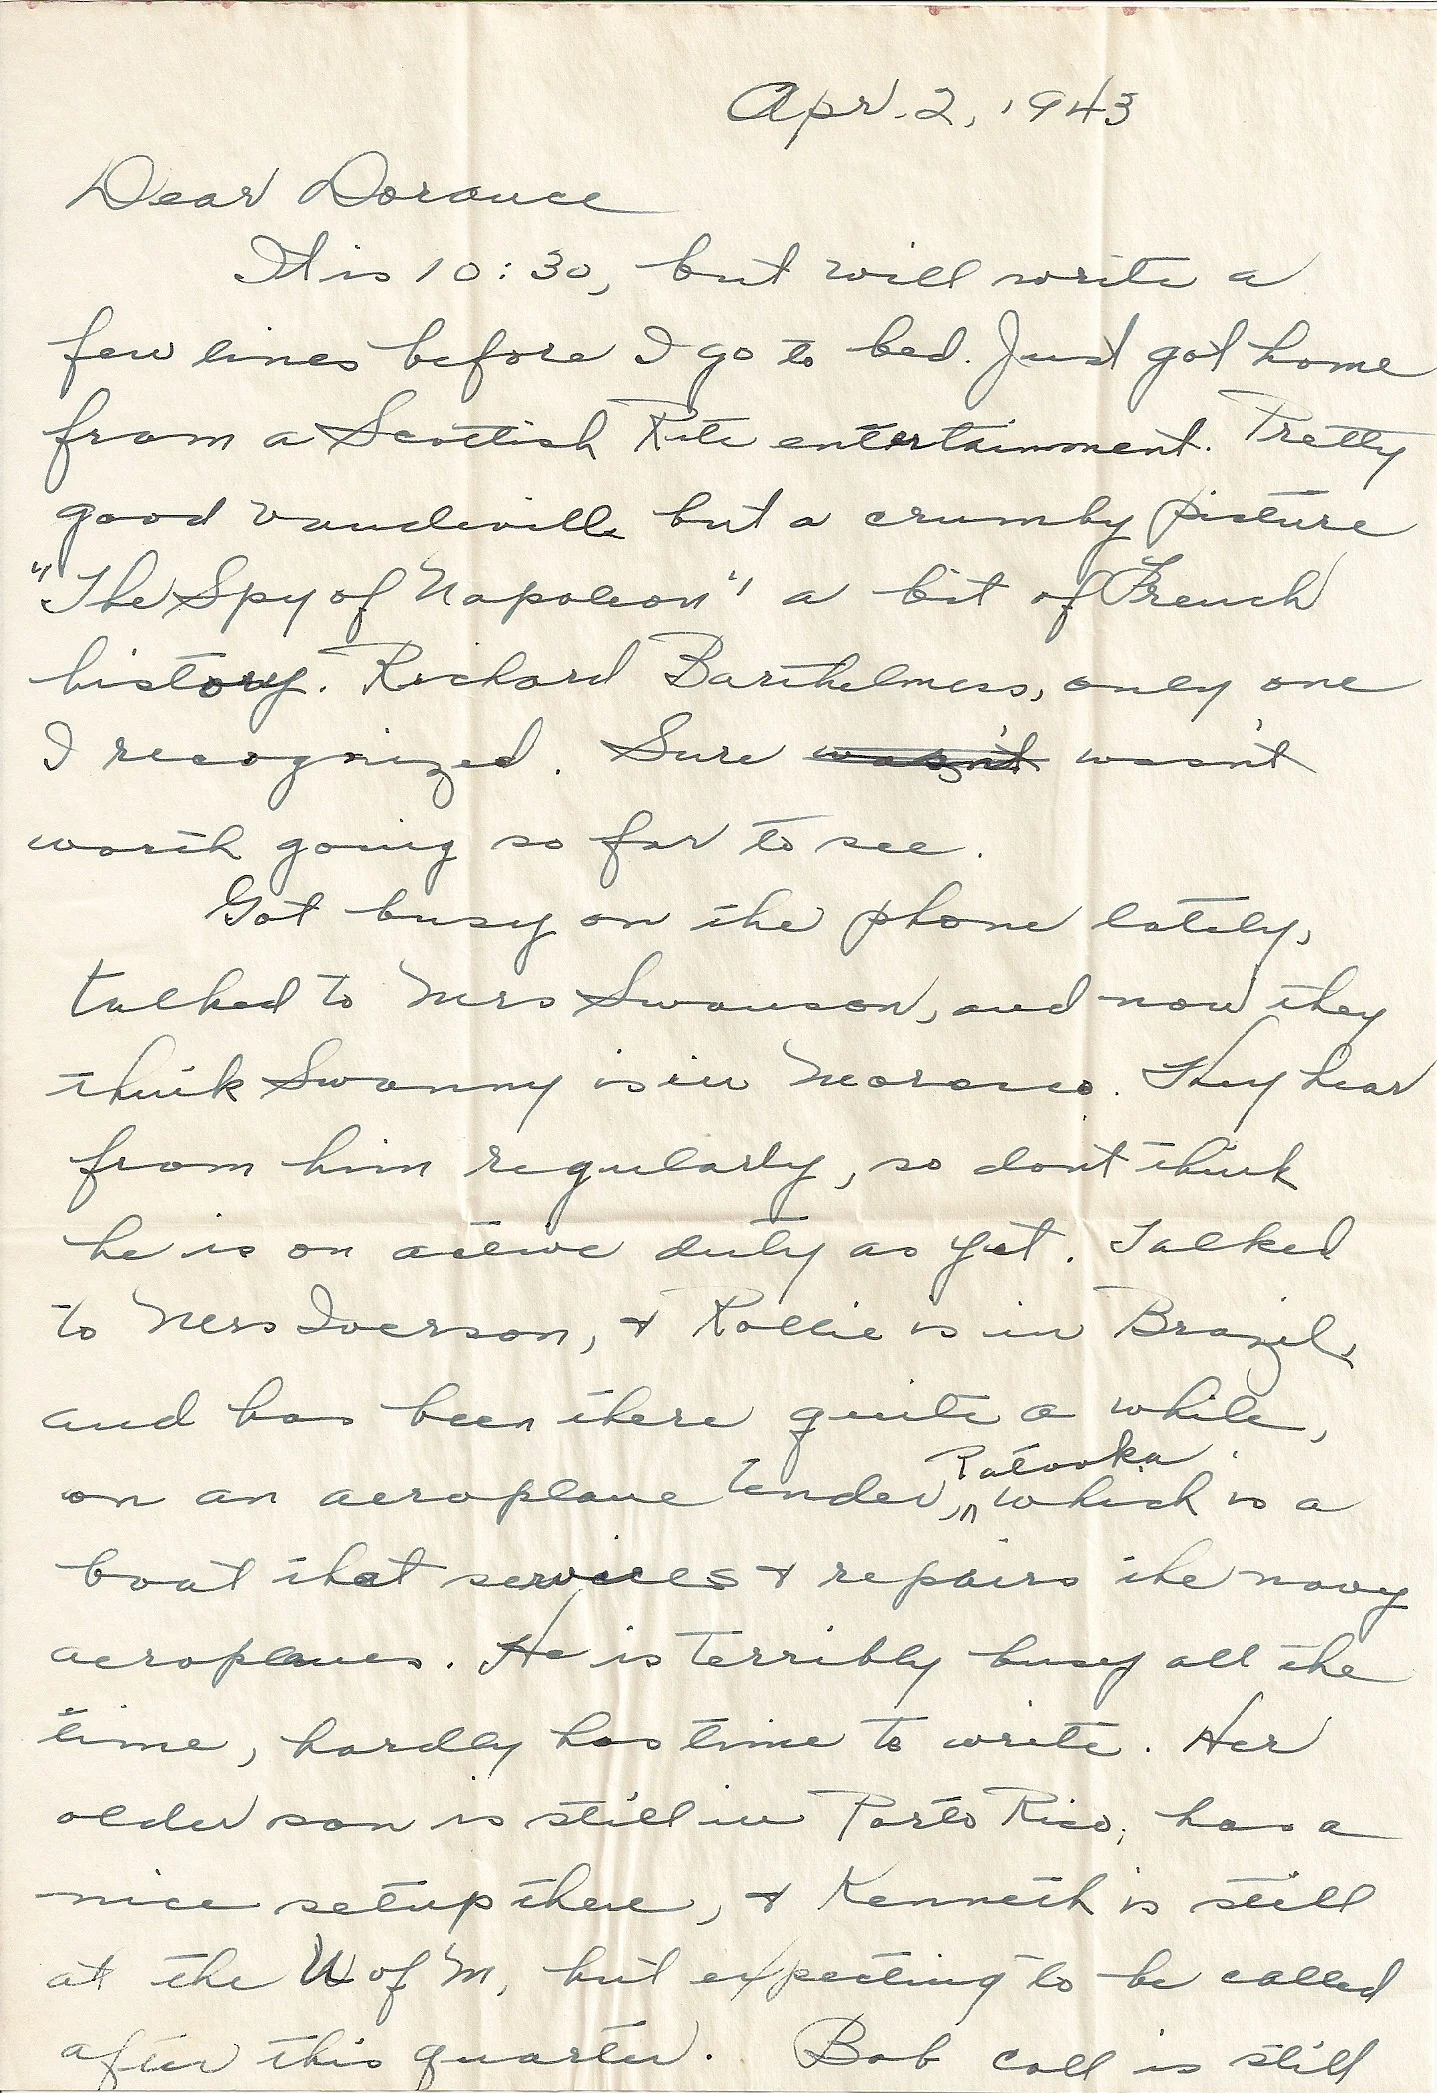 Apr. 2, 1943
Dear Dorance
It is 10:30, but will write a
few lines before I go to bed. Just got home
from a Scottish Rite entertainment. Pretty
good vaudeville but a crumby picture
"The Spy of Napoleon" a bit of French
history. Richard Barthelmess, only one
I recognized. Sure wasn't wasn't
worth going so far to see.
Got busy on the phone lately,
talked to Mrs Swanson, and now they
think Swanny is in Morocco. They hear
from him regularly, so don't think
he is on active duty as yet. Talked
to Mrs Iverson, & Rollie is in Brazil,
and has been there quite a while,
Patooka
on an aeroplane tender, ^ which is a
boat that services & repairs the navy
aeroplanes. He is terribly busy all the
time, hardly has time to write. Her
older son is still in Porto Rico, has a
nice setup there, & Kenneth is still
at the U of M, but expecting to be called
after this quarter. Bob Coll is still